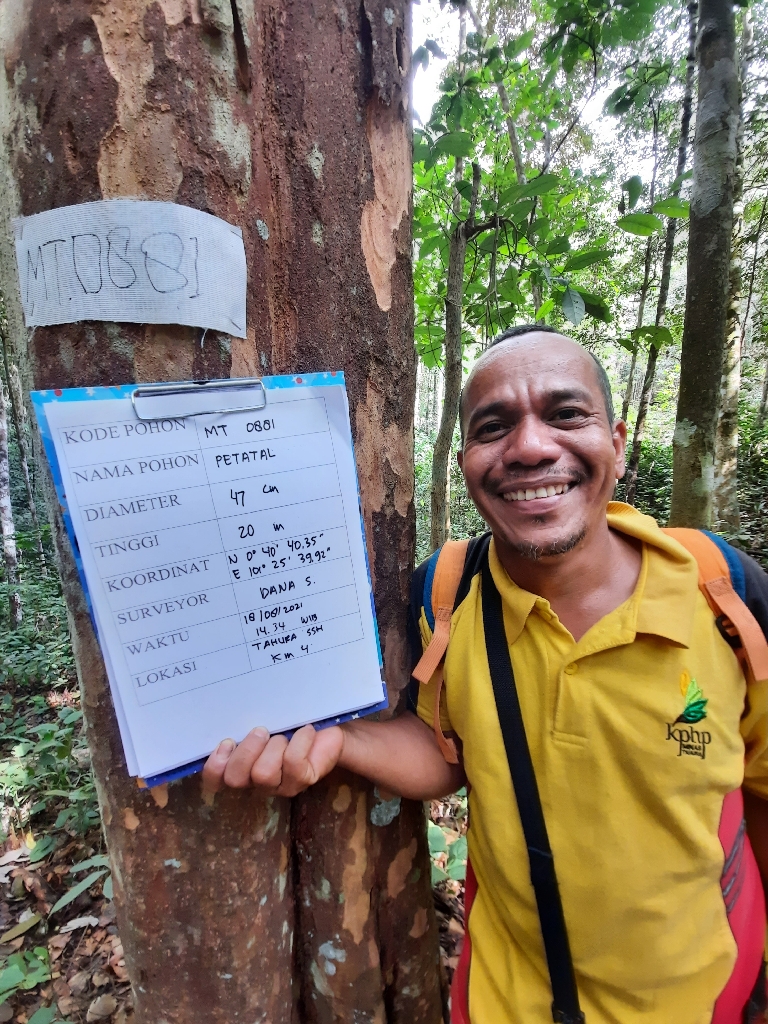 MT.0881
KODE POHON MT 0881
NAMA POHON PETATAL
DIAMETER 47 cm
TINGGI 20 m
KOORDINAT N 0° 40' 40.35"
E 101° 25' 39.92"
SURVEYOR DANA S.
WAKTU 18/08/2021
14.34 WIB
LOKASI TAHURA SSH
Km 4
kphp
MINAS
TAHURA